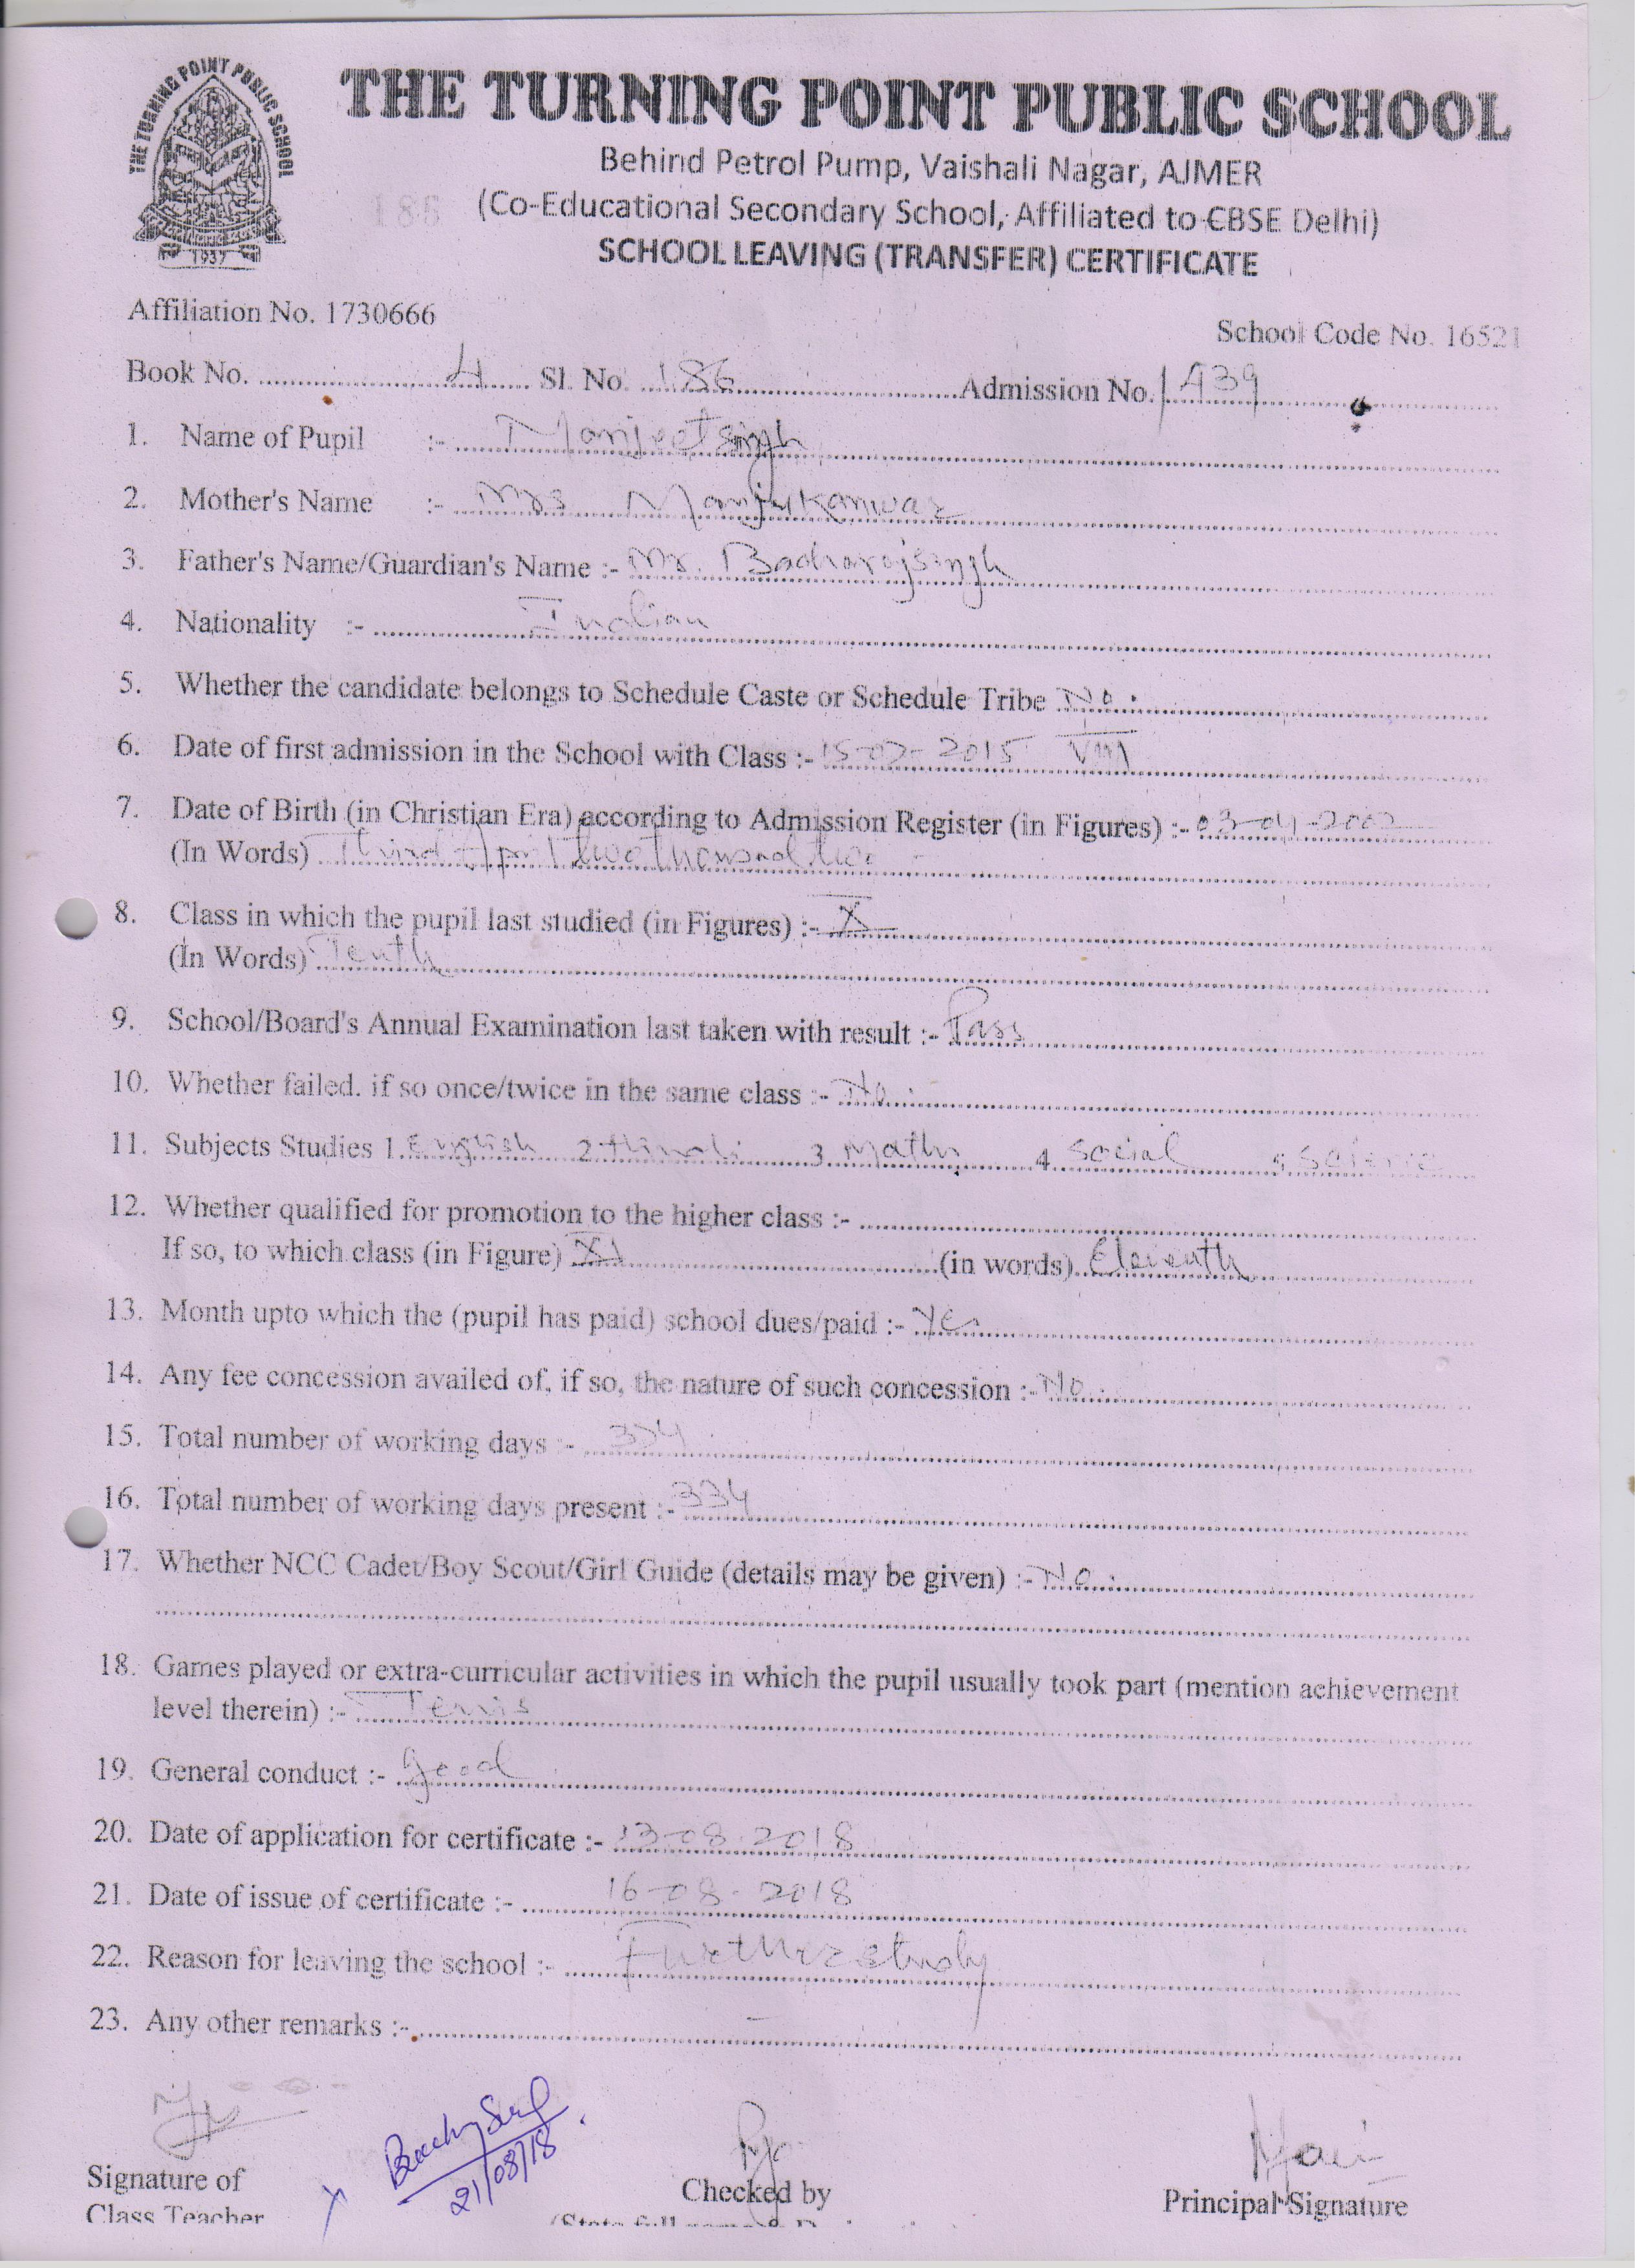 THE TURNING POINT PUBLIC SCHOOL
THE TURNING POINT PUBLIC SCHOOL
Behind Petrol Pump, Vaishali Nagar, AJMER
186 (Co-Educational Secondary School, Affiliated to CBSE Delhi)
1937
SCHOOL LEAVING (TRANSFER) CERTIFICATE
Affiliation No. 1730666
School Code No. 16521
Book No. 4 Sl. No. 186 Admission No. 1439
1. Name of Pupil :- Manjeet singh
2. Mother's Name :- Mrs Manju Kanwar
3. Father's Name/Guardian's Name :- Mr. Bacharaj singh
4. Nationality :- Indian
5. Whether the candidate belongs to Schedule Caste or Schedule Tribe No.
6. Date of first admission in the School with Class :- 15-07-2015 VIII
7. Date of Birth (in Christian Era) according to Admission Register (in Figures) :- 03-04-2002
(In Words) Third April two thousand two
8. Class in which the pupil last studied (in Figures) :- X
(In Words) Tenth
9. School/Board's Annual Examination last taken with result :- Pass
10. Whether failed. if so once/twice in the same class :- No.
11. Subjects Studies 1. English 2. Hindi 3. Maths 4. Social 5. Science
12. Whether qualified for promotion to the higher class :-
If so, to which class (in Figure) XI (in words) Eleventh
13. Month upto which the (pupil has paid) school dues/paid :- Yes
14. Any fee concession availed of, if so, the nature of such concession :- No.
15. Total number of working days :-
16. Total number of working days present :- 334
17. Whether NCC Cadet/Boy Scout/Girl Guide (details may be given) :- No.
18. Games played or extra-curricular activities in which the pupil usually took part (mention achievement
level therein) :- Tennis
19. General conduct :- Good
20. Date of application for certificate :- 13-08-2018
21. Date of issue of certificate :- 16-08-2018
22. Reason for leaving the school :- Further study
23. Any other remarks :- -
21/08/18
Signature of
Class Teacher
Checked by
Principal Signature